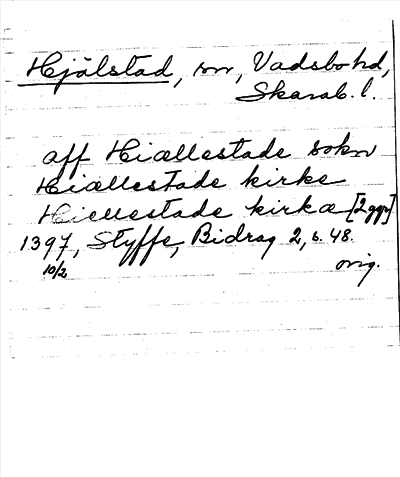 Hjälstad, sn, Vadsbo hd,
Skarab. l.
aff Hiællestade sokn
Hiællestade kirke
Hiellestade kirkæ [2 ggr]
1397, Styffe, Bidrag 2, s. 48.
10/2 orig.